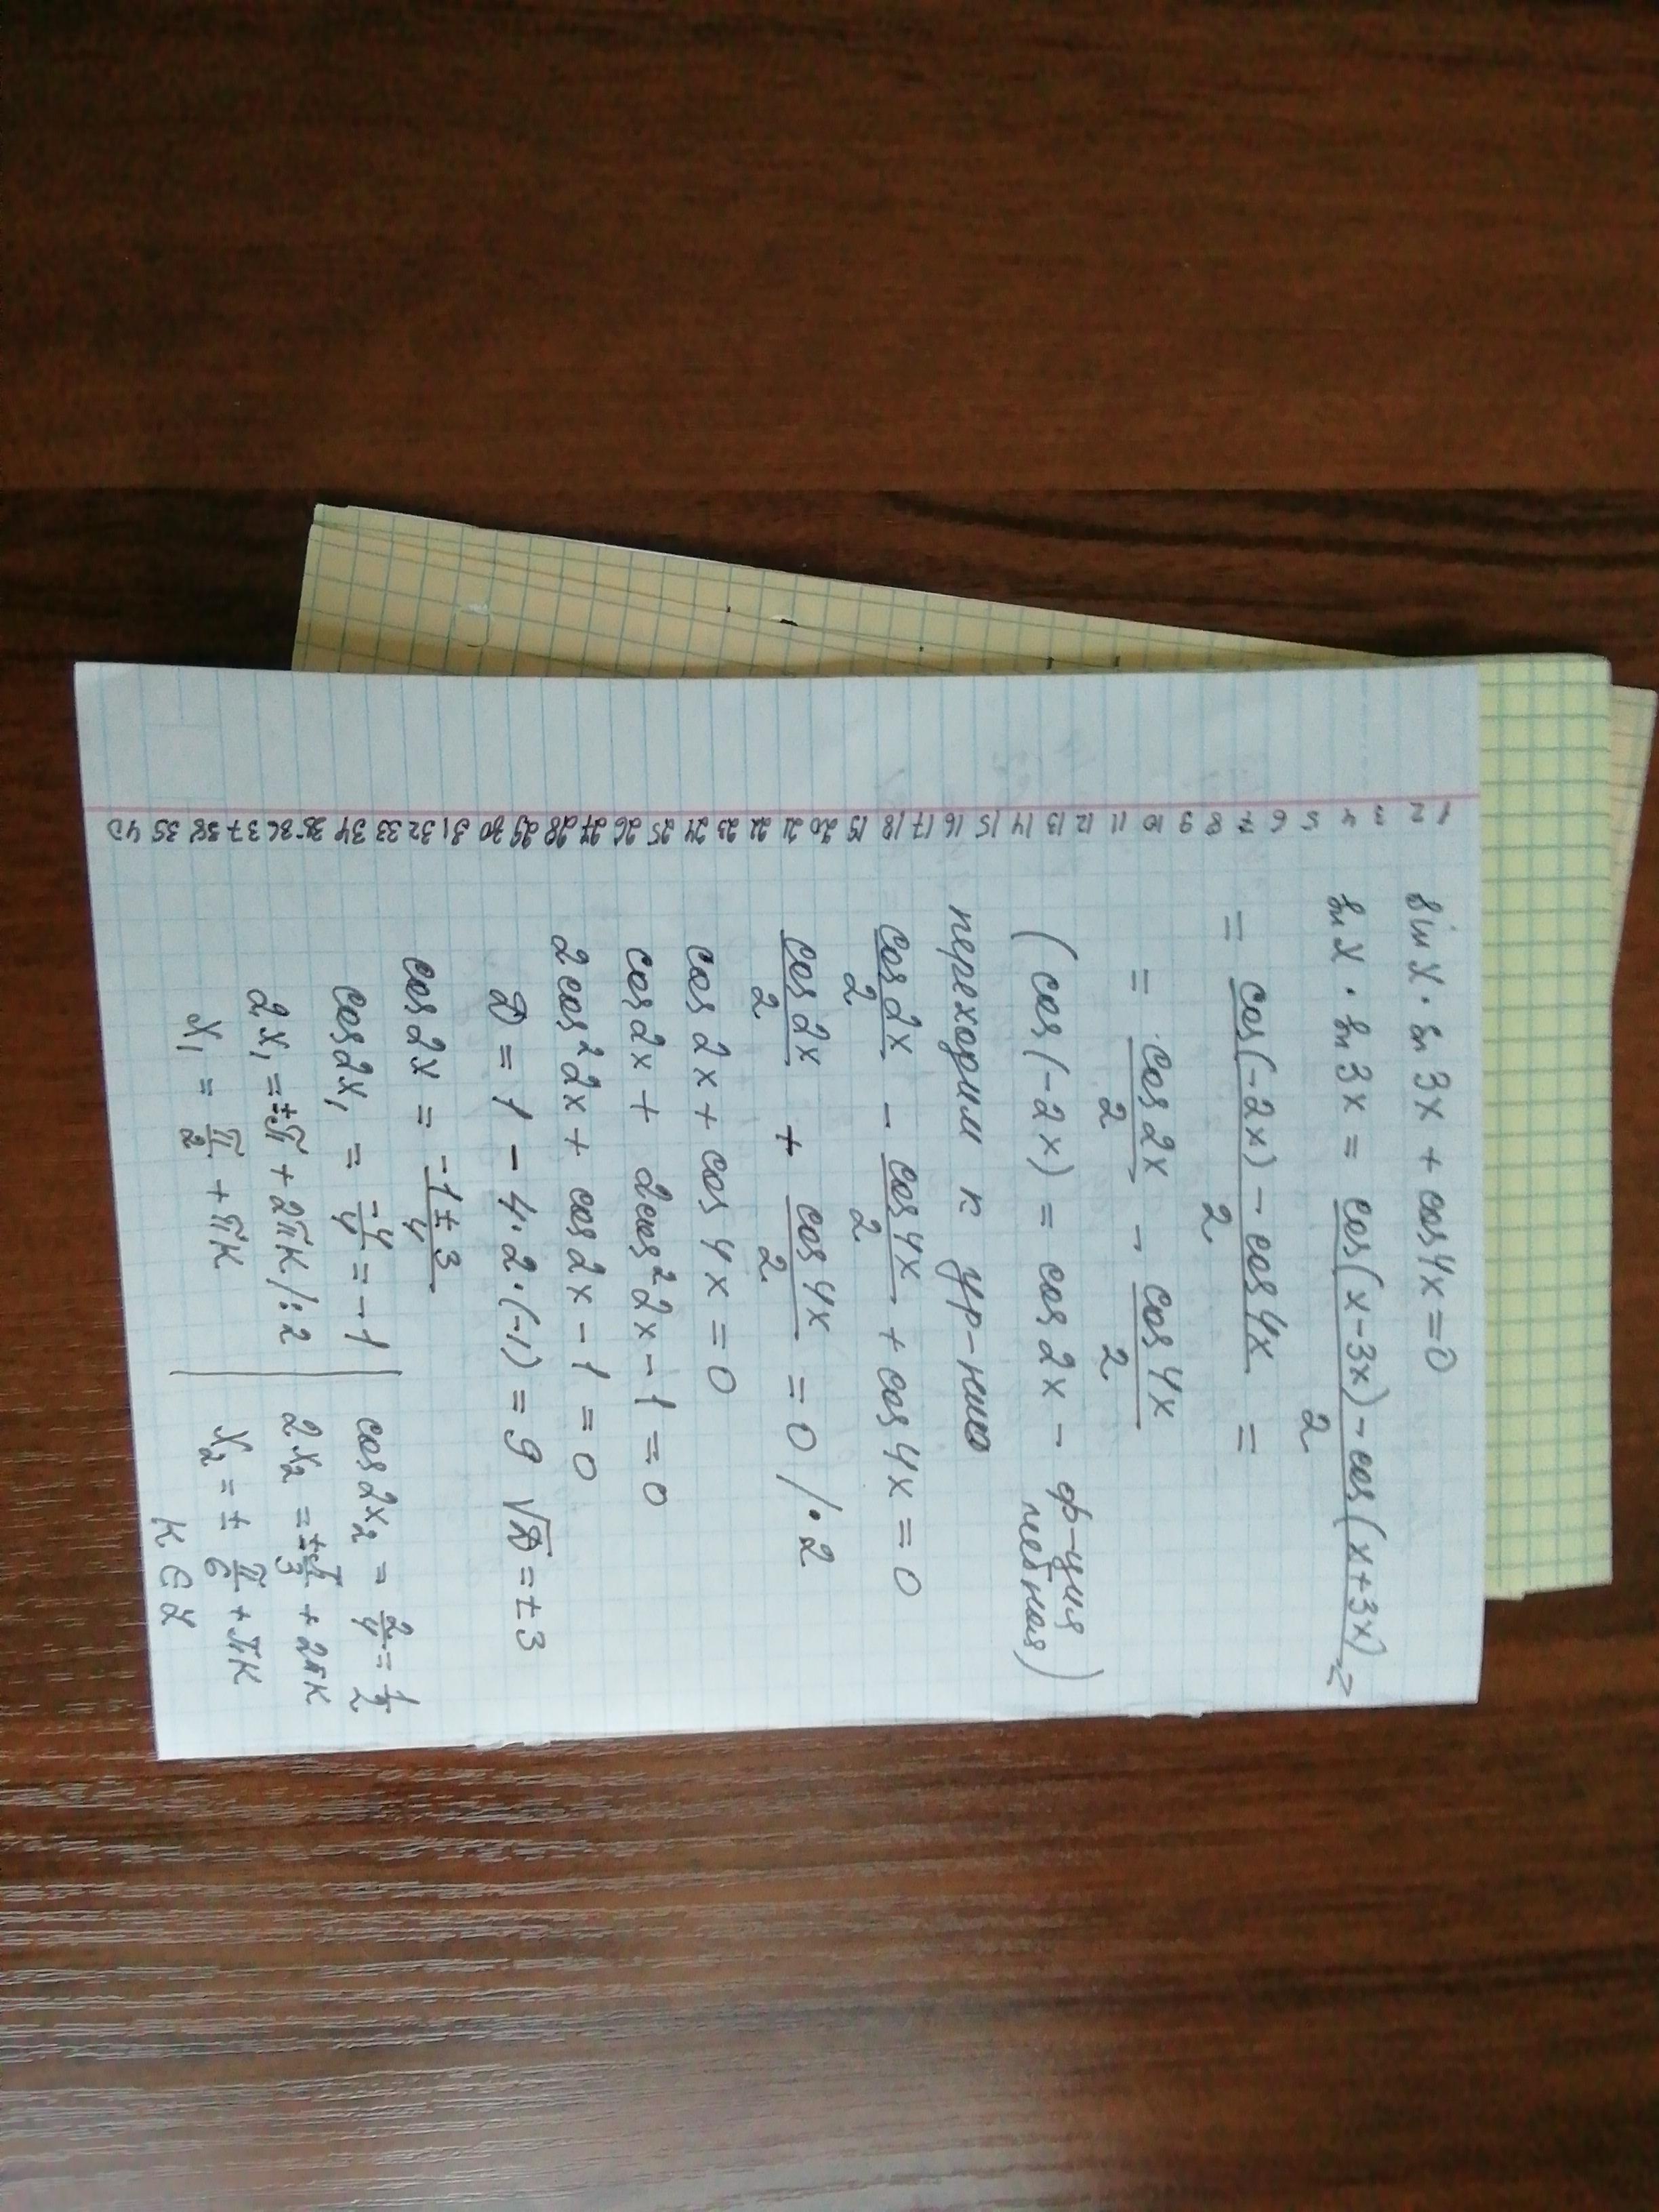 1 2 3 4 5 6 7 8 9 10 11 12 13 14 15 16 17 18 19 20 21 22 23 24 25 26 27 28 29 30 31 32 33 34 35 36 37 38 39 40
sin x · sin 3x + cos 4x = 0
sin x · sin 3x = cos(x-3x) - cos(x+3x) / 2 =
= cos(-2x) - cos 4x / 2 =
= cos 2x / 2 - cos 4x / 2
(cos(-2x) = cos 2x - ф-ция
чётная)
переходим к ур-нию
cos 2x / 2 - cos 4x / 2 + cos 4x = 0
cos 2x / 2 + cos 4x / 2 = 0 / · 2
cos 2x + cos 4x = 0
cos 2x + 2cos² 2x - 1 = 0
2cos² 2x + cos 2x - 1 = 0
D = 1 - 4·2·(-1) = 9 √D = ±3
cos 2x = -1±3 / 4
cos 2x₁ = -4/4 = -1 | cos 2x₂ = 2/4 = 1/2
2x₁ = ±π + 2πk /:2 | 2x₂ = ±π/3 + 2πk
x₁ = π/2 + πk | x₂ = ± π/6 + πk
k ∈ Z